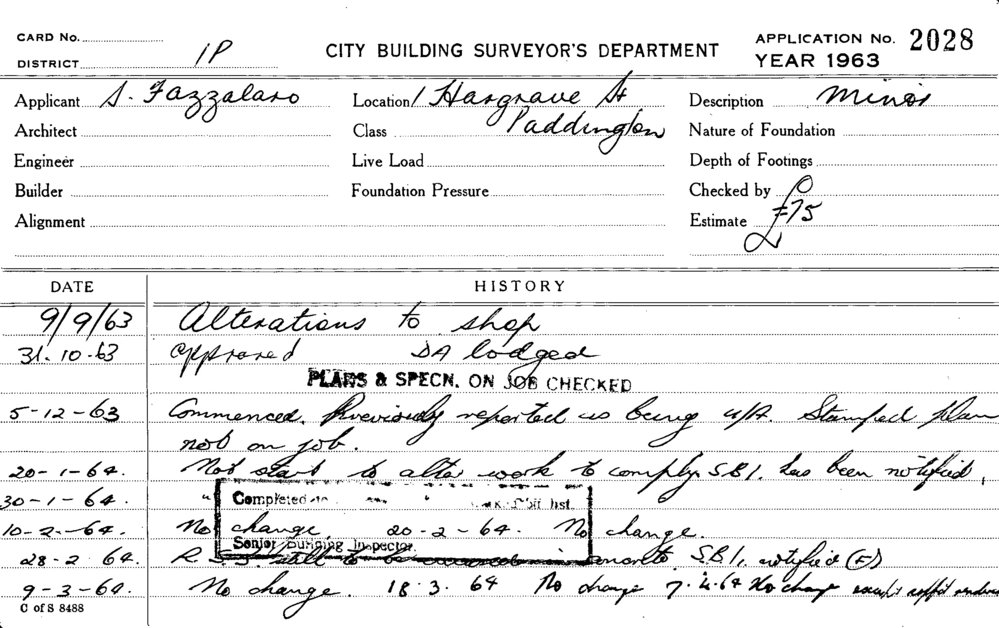 CARD No.
DISTRICT 1P
CITY BUILDING SURVEYOR'S DEPARTMENT
APPLICATION No. 2028
YEAR 1963
Applicant S. Fazzalaro
Location 1 Hargrave St
Paddington
Description Minor
Architect
Class
Nature of Foundation
Engineer
Live Load
Depth of Footings
Builder
Foundation Pressure
Checked by
Alignment
Estimate £75
DATE HISTORY
9/9/63 Alterations to shop
31.10.63 approved DA lodged
PLANS & SPECN. ON JOB CHECKED
5-12-63 Commenced. Previously reported as being u/A. Stamped plan
not on job.
20-1-64. Not start to alter work to comply. S.B.I. has been notified.
30-1-64. "
Completed
list.
10-2-64. No change 20-2-64. No change.
Senior Building Inspector.
28-2 64. R.S.J. still to be in concrete. S.B.I. notified (F)
9-3-64. No change. 18.3.64 No change 7.4.64 No change except soffit
C of S 8488